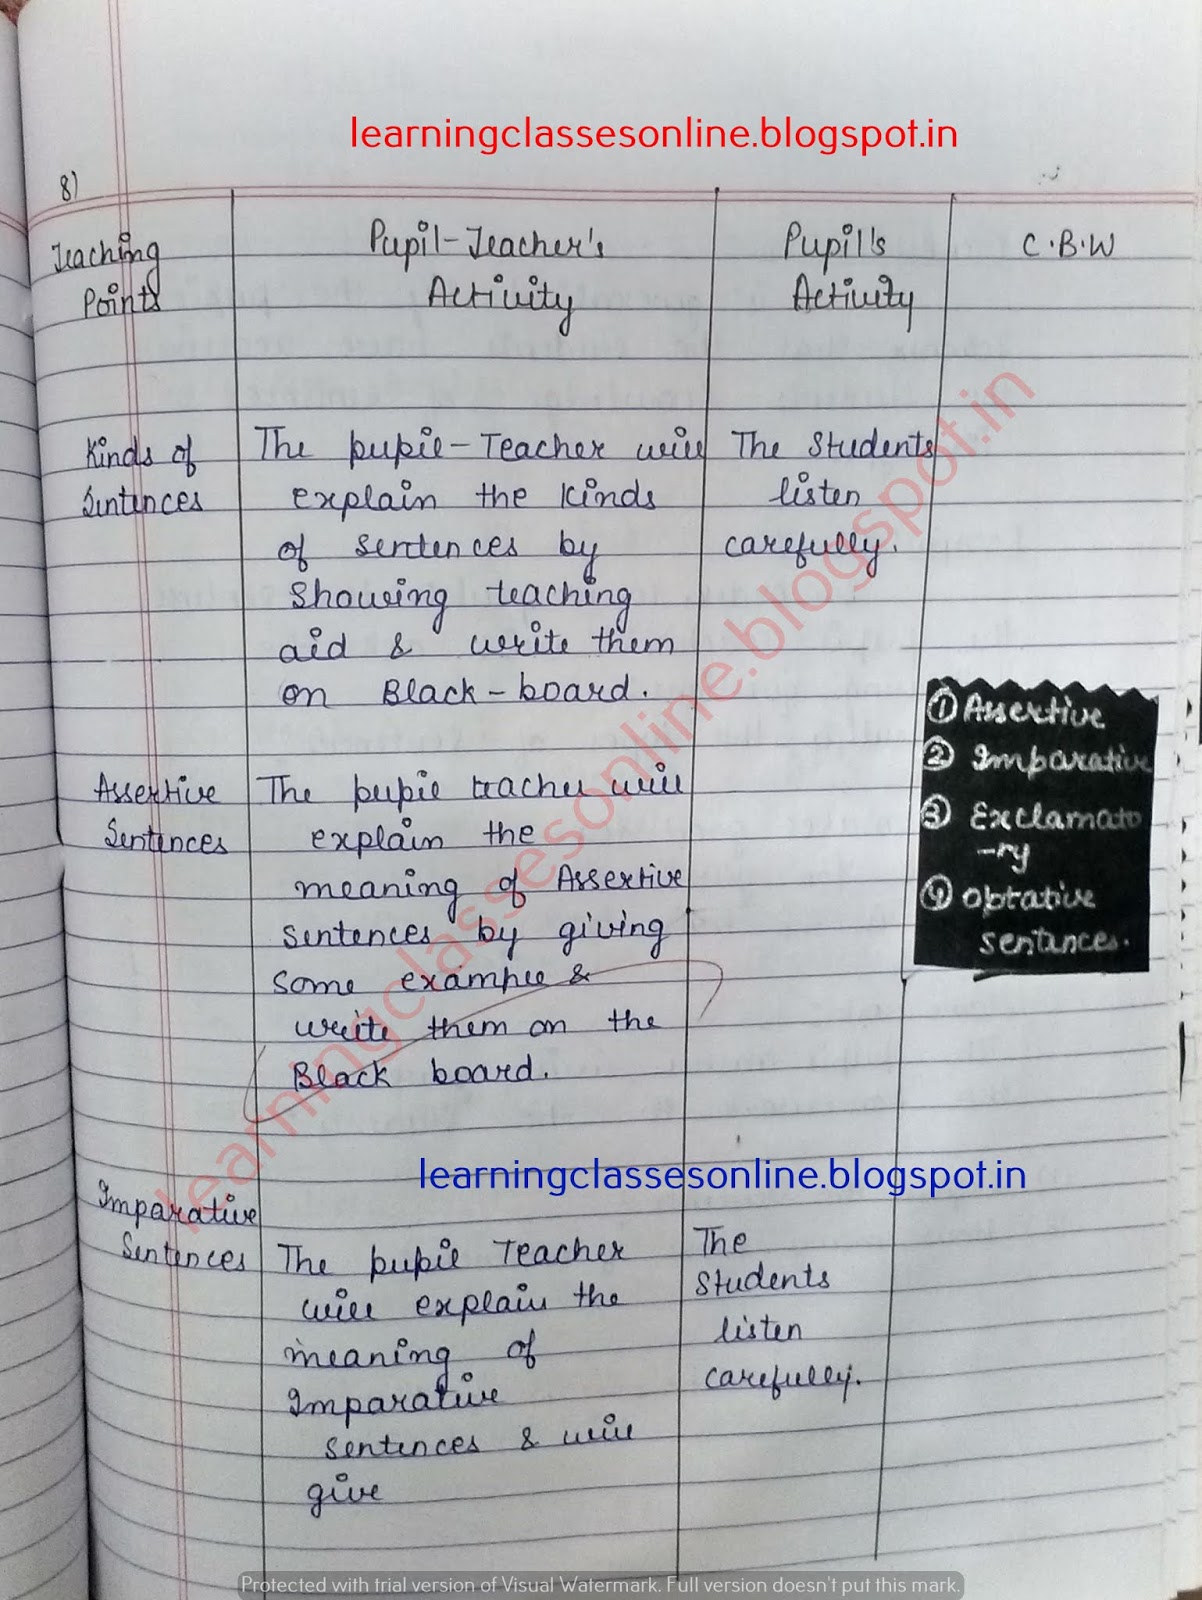 learningclassesonline.blogspot.in
8)
Teaching
Points
Pupil-Teacher's
Activity
Pupil's
Activity
C.B.W
Kinds of
Sentences
The pupil-Teacher will
explain the kinds
of sentences by
showing teaching
aid & write them
on Black-board.
The Students
listen
carefully.
① Assertive
② Imparative
③ Exclamato
-ry
④ Optative
sentances.
Assertive
Sentences
The pupil teacher will
explain the
meaning of Assertive
sentences by giving
some example &
write them on the
Black board.
learningclassesonline.blogspot.in
learningclassesonline.blogspot.in
Imparative
Sentences
The pupil Teacher
will explain the
meaning of
Imparative
sentences & will
give
The
Students
listen
carefully.
Protected with trial version of Visual Watermark. Full version doesn't put this mark.